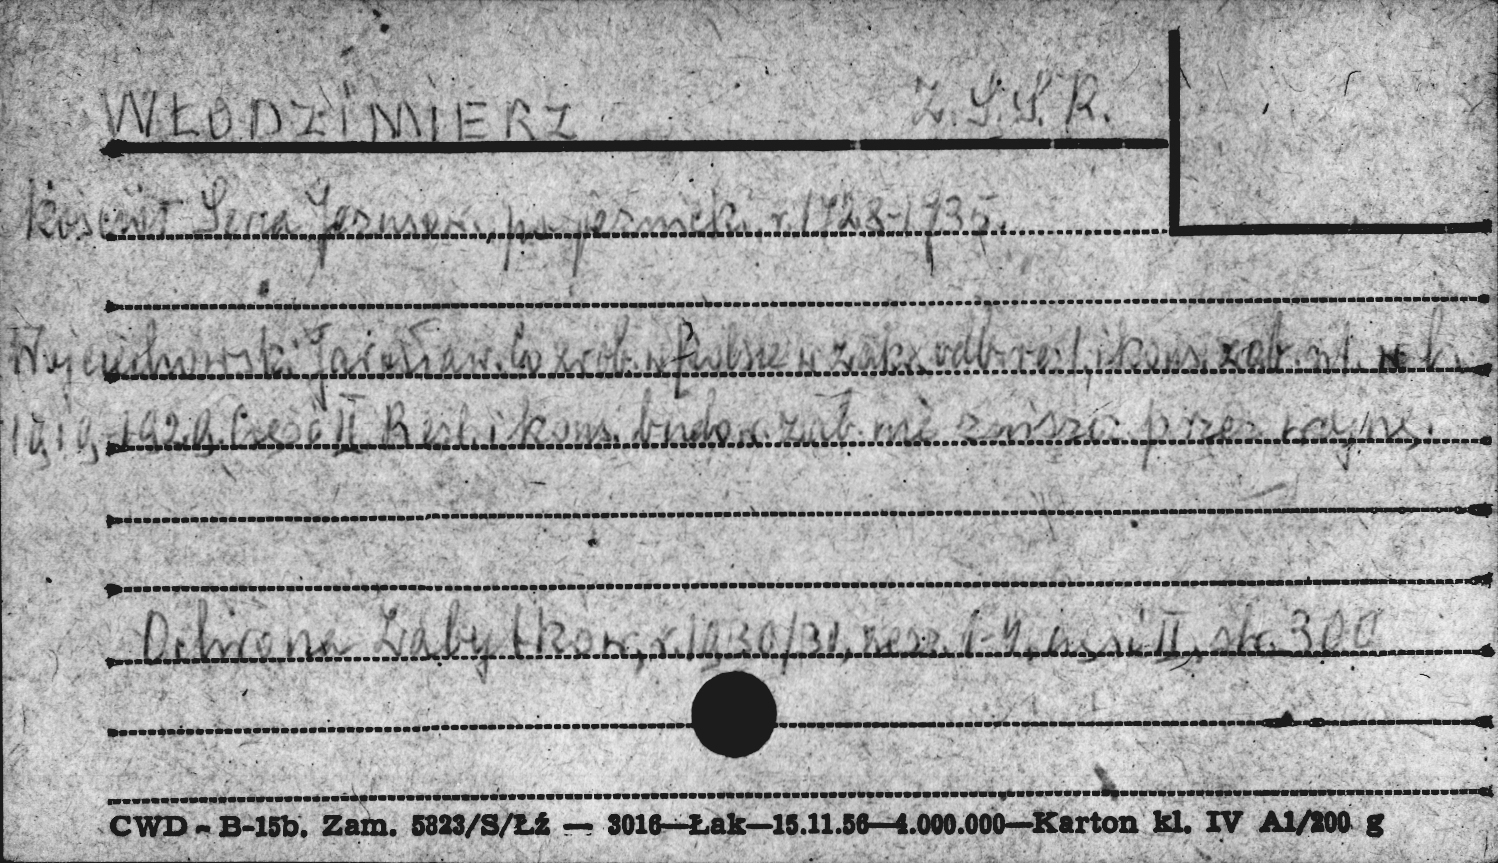 WŁODZIMIERZ Z.S.S.R.
kościół Serca Jezusow., po jezuick. r. 1728-1735.
Wojciechowski Jarosław. Co zrob. w Polsce w zakr. odb. rest. i kons. zab. szt. w l.
1919-1929. Część II Rest. i kons. budow. zab. nie zniszcz. przez wojnę.
Ochrona Zabytków, r. 1930/31, zesz. 1-4, część II, str. 300
CWD - B-15b. Zam. 5823/S/Łź — 3016—Łak—15.11.56—4.000.000—Karton kl. IV A1/200 g